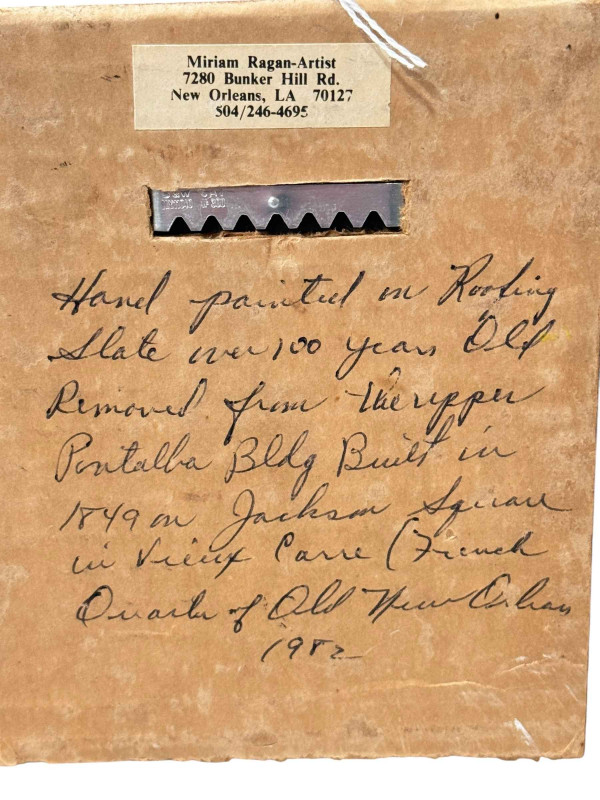 Miriam Ragan-Artist
7280 Bunker Hill Rd.
New Orleans, LA 70127
504/246-4695
Hand painted on Roofing
Slate over 100 years Old
Removed from the upper
Pontalba Bldg Built in
1849 on Jackson Square
in Vieux Carre (French
Quarter of Old New Orleans
1982